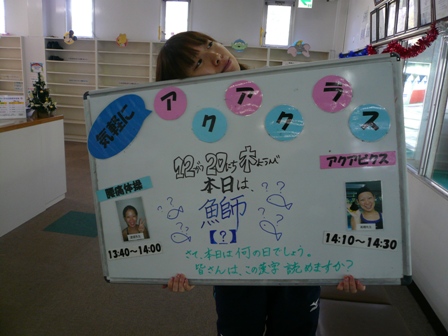 気軽に
アクアクラス
12月20日 木ようび
本日は、
鰤
【?】
腰痛体操
13:40~14:00
アクアビクス
14:10~14:30
さて、本日は何の日でしょう。
皆さんは、この漢字 読めますか?